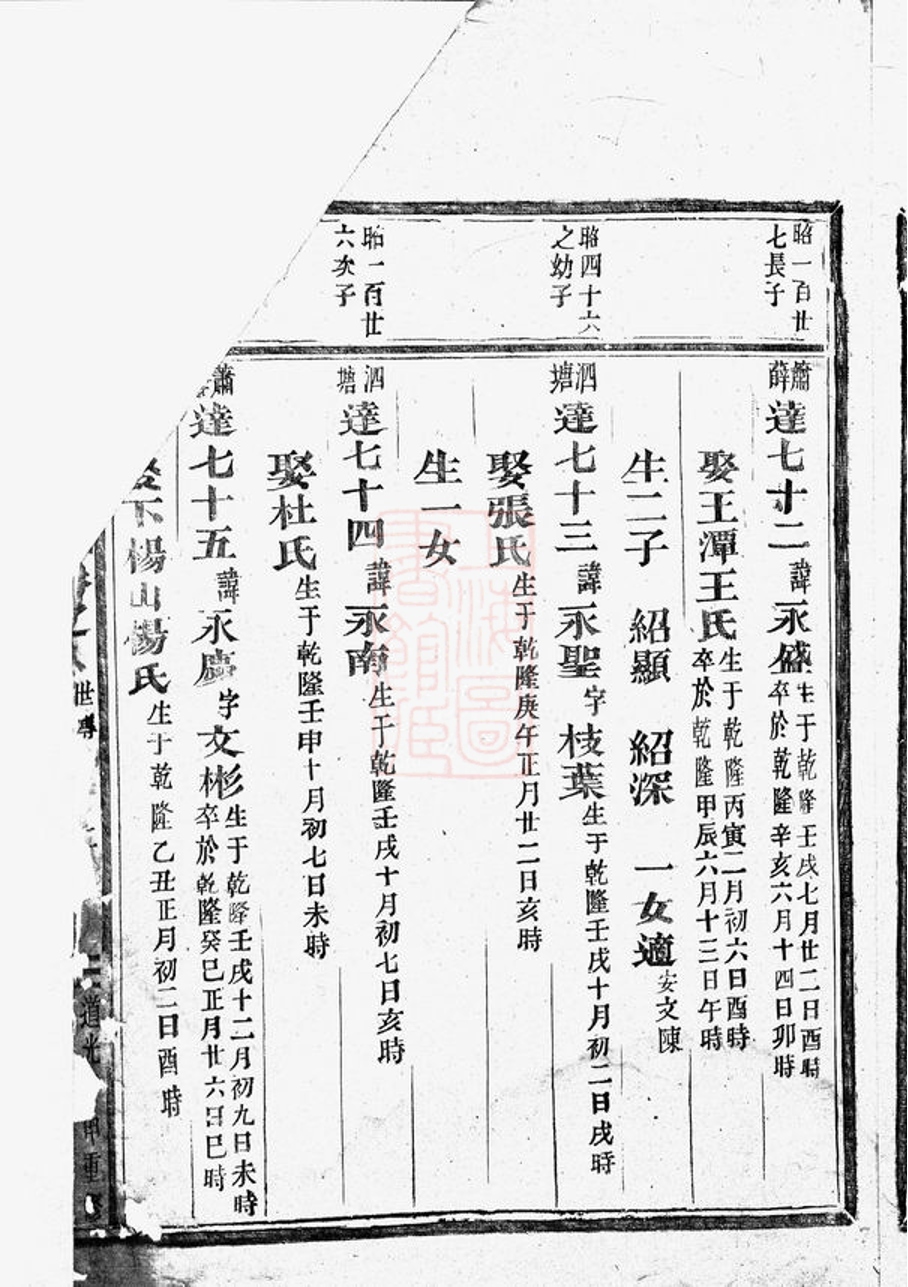 昭一百廿
七長子
蕭
薛
達七十二諱永盛
生于乾隆壬戌七月廿二日酉時
卒於乾隆辛亥六月十四日卯時
娶王潭王氏
生于乾隆丙寅二月初六日酉時
卒於乾隆甲辰六月十三日午時
生二子 紹顯 紹深 一女適安文陳
昭四十六
之幼子
泗
塘
達七十三諱永聖字枝葉生于乾隆壬戌十月初二日戌時
娶張氏生于乾隆庚午正月廿二日亥時
生一女
昭一百廿
六次子
泗
塘
達七十四諱永南生于乾隆壬戌十月初七日亥時
娶杜氏生于乾隆壬申十月初七日未時
蕭
達七十五諱永廬字文彬
生于乾隆壬戌十二月初九日未時
卒於乾隆癸巳正月廿六日巳時
下楊山楊氏生于乾隆乙丑正月初二日酉時
世傳
道光
甲
重
上海圖
書館藏